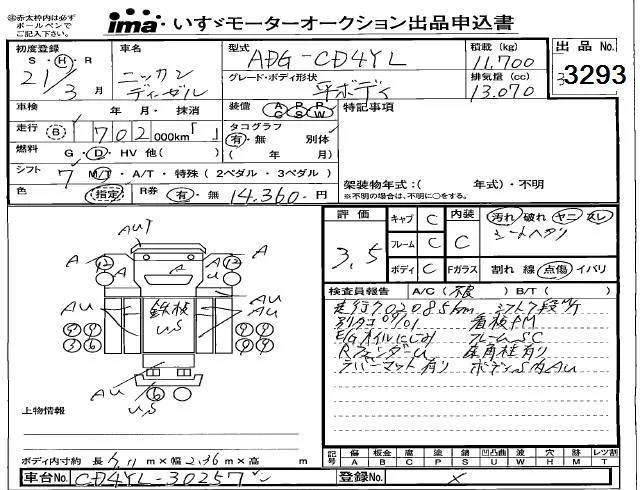 ㊟赤太枠内は必ず
ボールペンで
ご記入下さい。
ima いすゞモーターオークション出品申込書
初度登録 S・H・R 21年 3月
車名 ニッサンディーゼル
型式 ADG-CD4YL
積載 (kg) 11,700
出品No. 3293
グレード・ボディ形状 平ボディ
排気量 (cc) 13,070
車検 年・月・抹消
装備 AC PS PW
特記事項
走行 B 702,000km「」
タコグラフ 有・無 別体
( 年 月)
燃料 G・D・HV 他( )
シフト 7 M/T・A/T・特殊(2ペダル・3ペダル)
架装物年式:( 年式)・不明
※不明の場合は、不明に○をする。
色 指定 R券 有・無 14,360円
評価 3.5
キャブ C
フレーム C
ボディ C
内装 C
Fガラス
汚れ 破れ ヤニ ズレ
シートヘタリ
割れ 線 点傷 イバリ
検査員報告 A/C( 不良 ) B/T( )
走行702085km シフト7段M/T
別タコ09/01 看板PM
E/Gオイルにじみ フレームSC
RフェンダーU
有り ボデーS内AU
AUT
A
A
A
A
AU
AU
AU
AU
鉄板
US
AU
US
上物情報
ボディ内寸約 長 m×幅 2.36m×高 m
記号 傷A 板金B 腐C 塗P 錆S 凹凸曲U 波W 穴H 跡M レツ割T
車台No. CD4YL-30257
登録No. ×